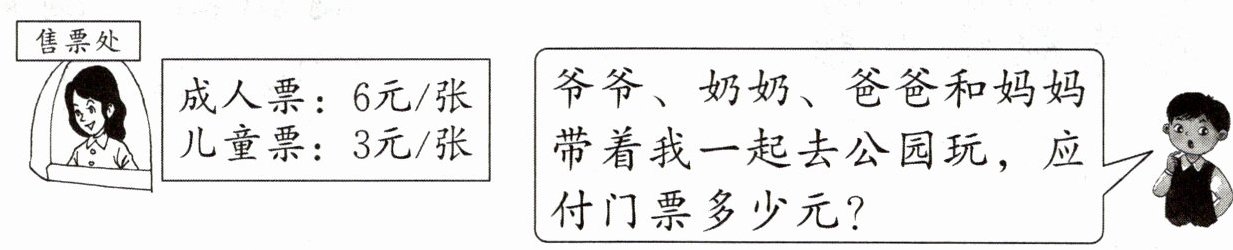 售票处
成人票：6元/张
儿童票：3元/张
爷爷、奶奶、爸爸和妈妈
带着我一起去公园玩，应
付门票多少元？